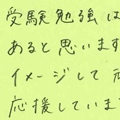 受験勉強は
あると思います
イメージして元
応援しています